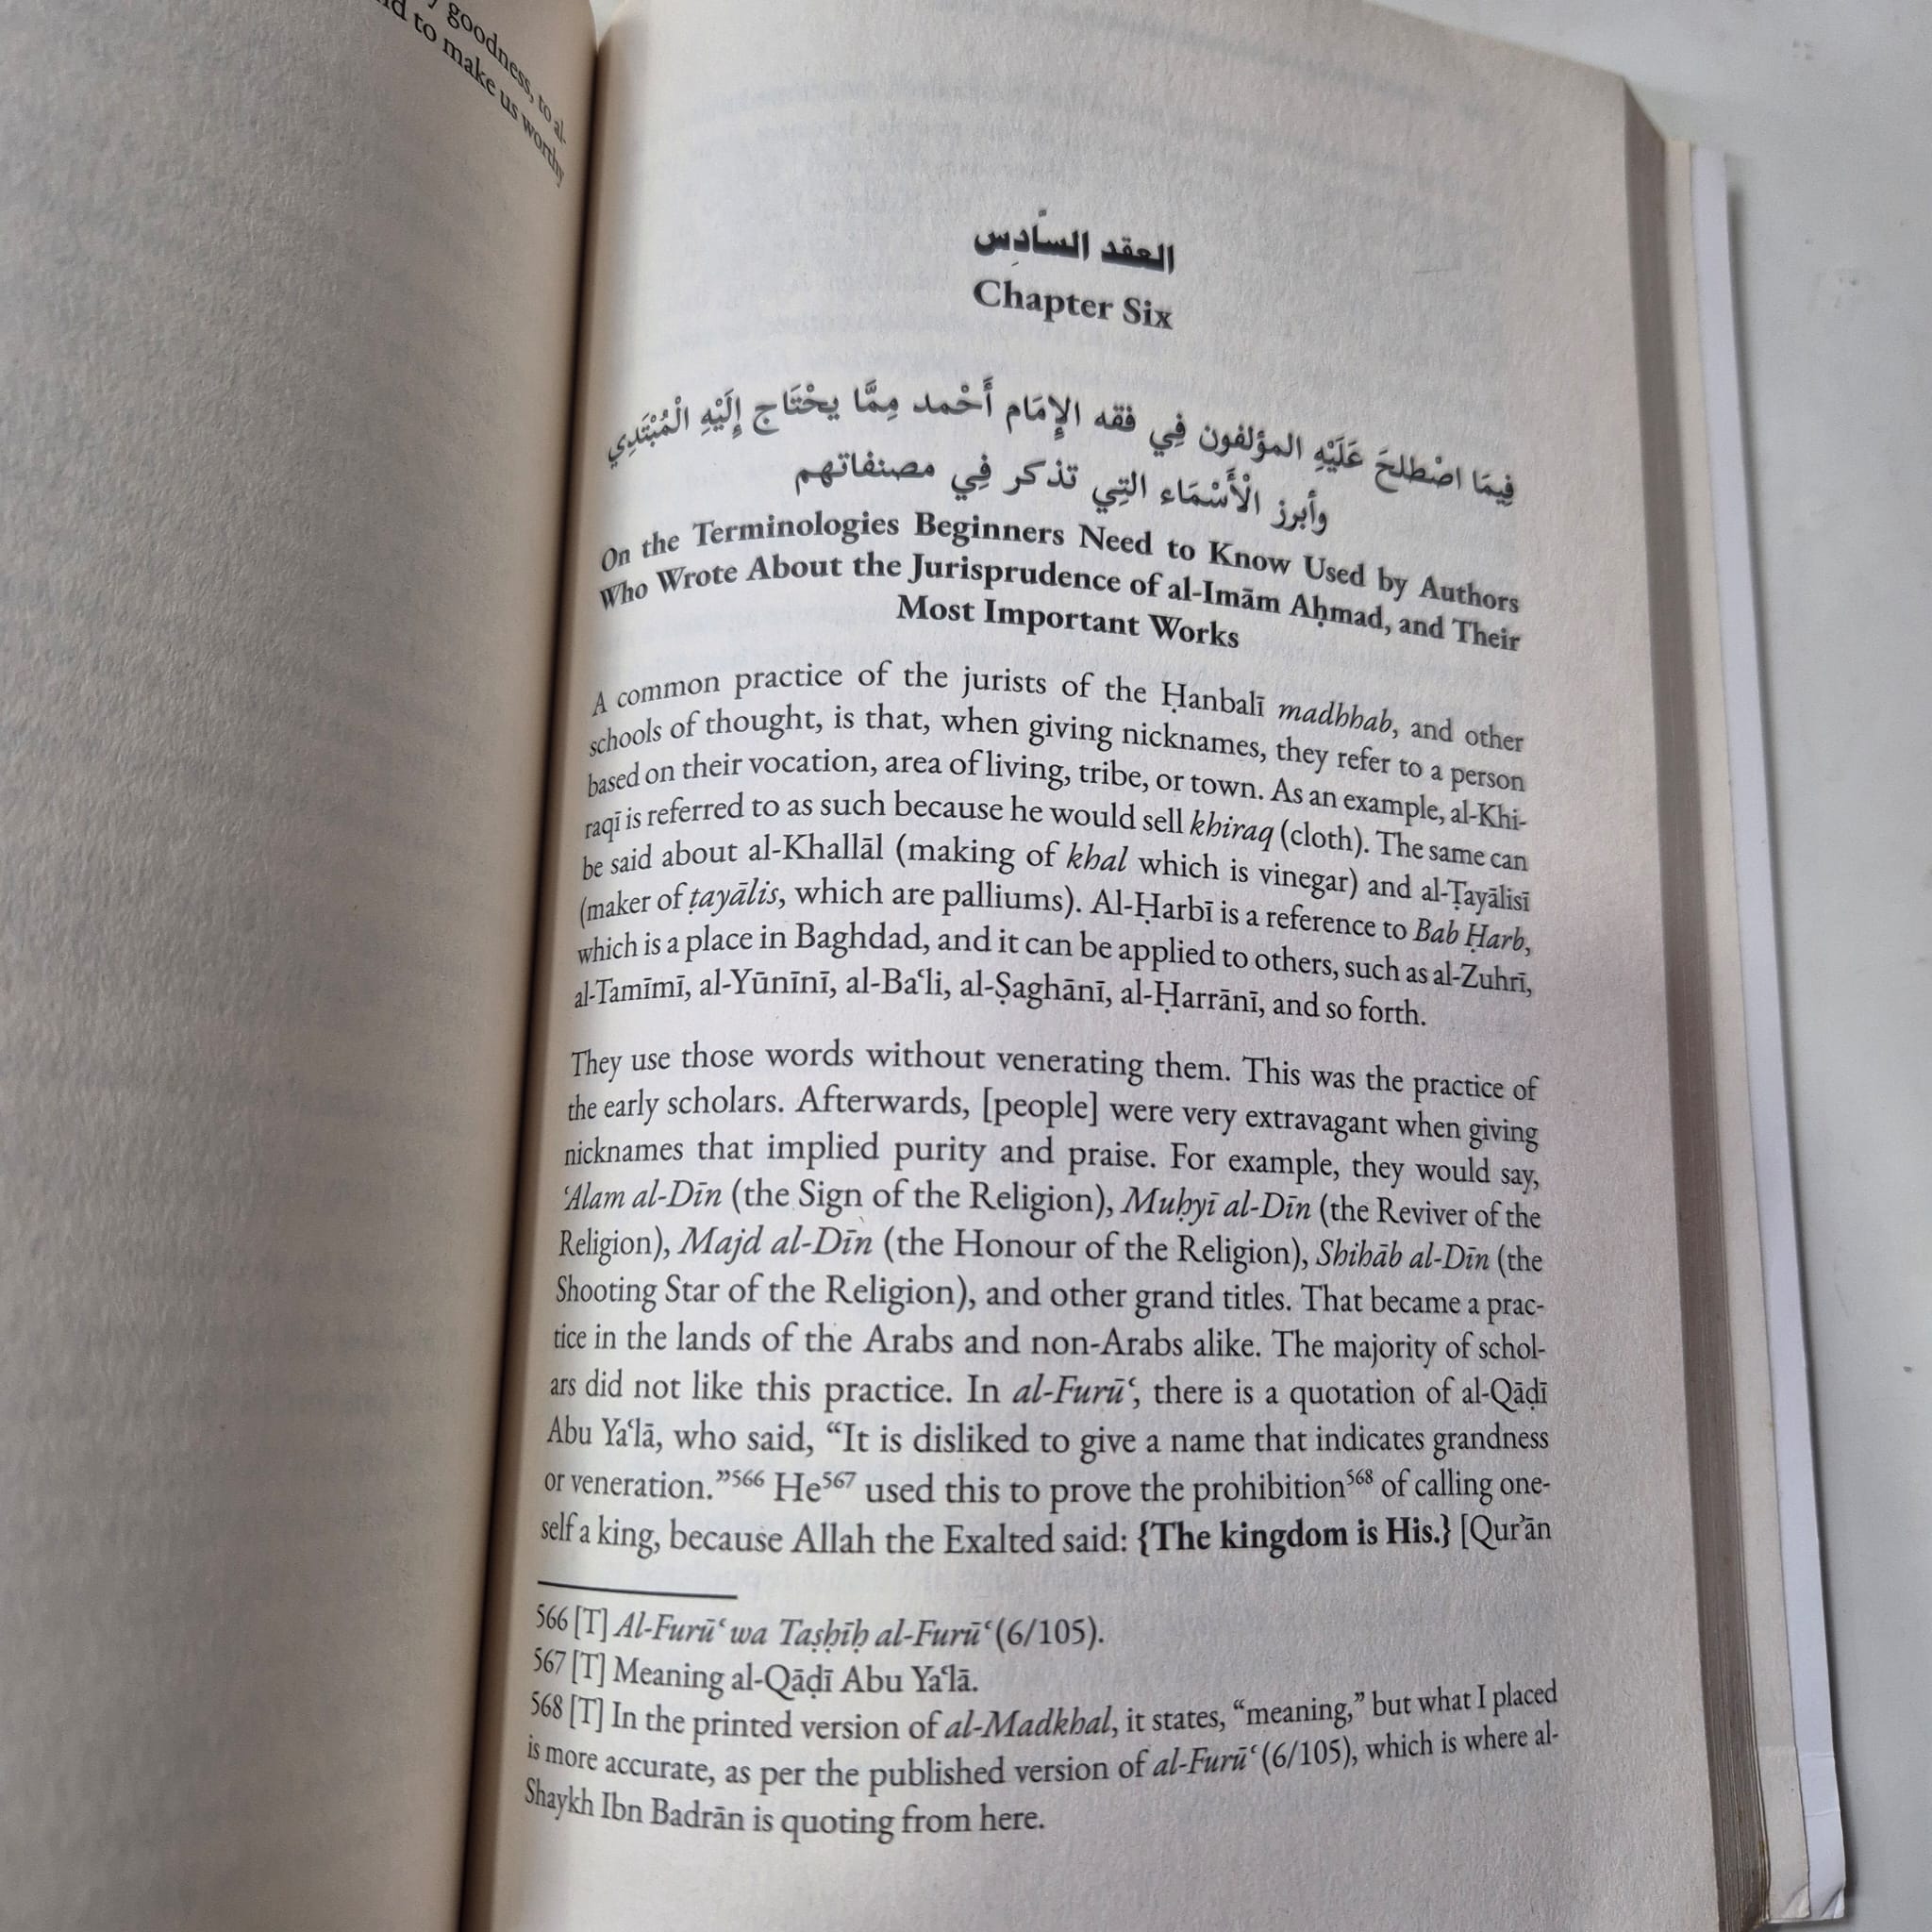 goodness, to al-
to make us worthy
العقد السَّادِس
Chapter Six
فِيمَا اصْطلحَ عَلَيْهِ المؤلفون فِي فقه الإِمَام أَحْمد مِمَّا يحْتَاج إِلَيْهِ الْمُبْتَدِي
وأبرز الْأَسْمَاء التِي تذكر فِي مصنفاتهم
On the Terminologies Beginners Need to Know Used by Authors
Who Wrote About the Jurisprudence of al-Imām Aḥmad, and Their
Most Important Works
A common practice of the jurists of the Ḥanbalī madhhab, and other
schools of thought, is that, when giving nicknames, they refer to a person
based on their vocation, area of living, tribe, or town. As an example, al-Khi-
raqī is referred to as such because he would sell khiraq (cloth). The same can
be said about al-Khallāl (making of khal which is vinegar) and al-Ṭayālisī
(maker of ṭayālis, which are palliums). Al-Ḥarbī is a reference to Bab Ḥarb,
which is a place in Baghdad, and it can be applied to others, such as al-Zuhrī,
al-Tamīmī, al-Yūnīnī, al-Ba‘li, al-Ṣaghānī, al-Ḥarrānī, and so forth.
They use those words without venerating them. This was the practice of
the early scholars. Afterwards, [people] were very extravagant when giving
nicknames that implied purity and praise. For example, they would say,
‘Alam al-Dīn (the Sign of the Religion), Muḥyī al-Dīn (the Reviver of the
Religion), Majd al-Dīn (the Honour of the Religion), Shihāb al-Dīn (the
Shooting Star of the Religion), and other grand titles. That became a prac-
tice in the lands of the Arabs and non-Arabs alike. The majority of schol-
ars did not like this practice. In al-Furū‘, there is a quotation of al-Qāḍī
Abu Ya‘lā, who said, “It is disliked to give a name that indicates grandness
or veneration.”566 He567 used this to prove the prohibition568 of calling one-
self a king, because Allah the Exalted said: {The kingdom is His.} [Qur’ān
566 [T] Al-Furū‘ wa Taṣḥīḥ al-Furū‘ (6/105).
567 [T] Meaning al-Qāḍī Abu Ya‘lā.
568 [T] In the printed version of al-Madkhal, it states, “meaning,” but what I placed
is more accurate, as per the published version of al-Furū‘ (6/105), which is where al-
Shaykh Ibn Badrān is quoting from here.